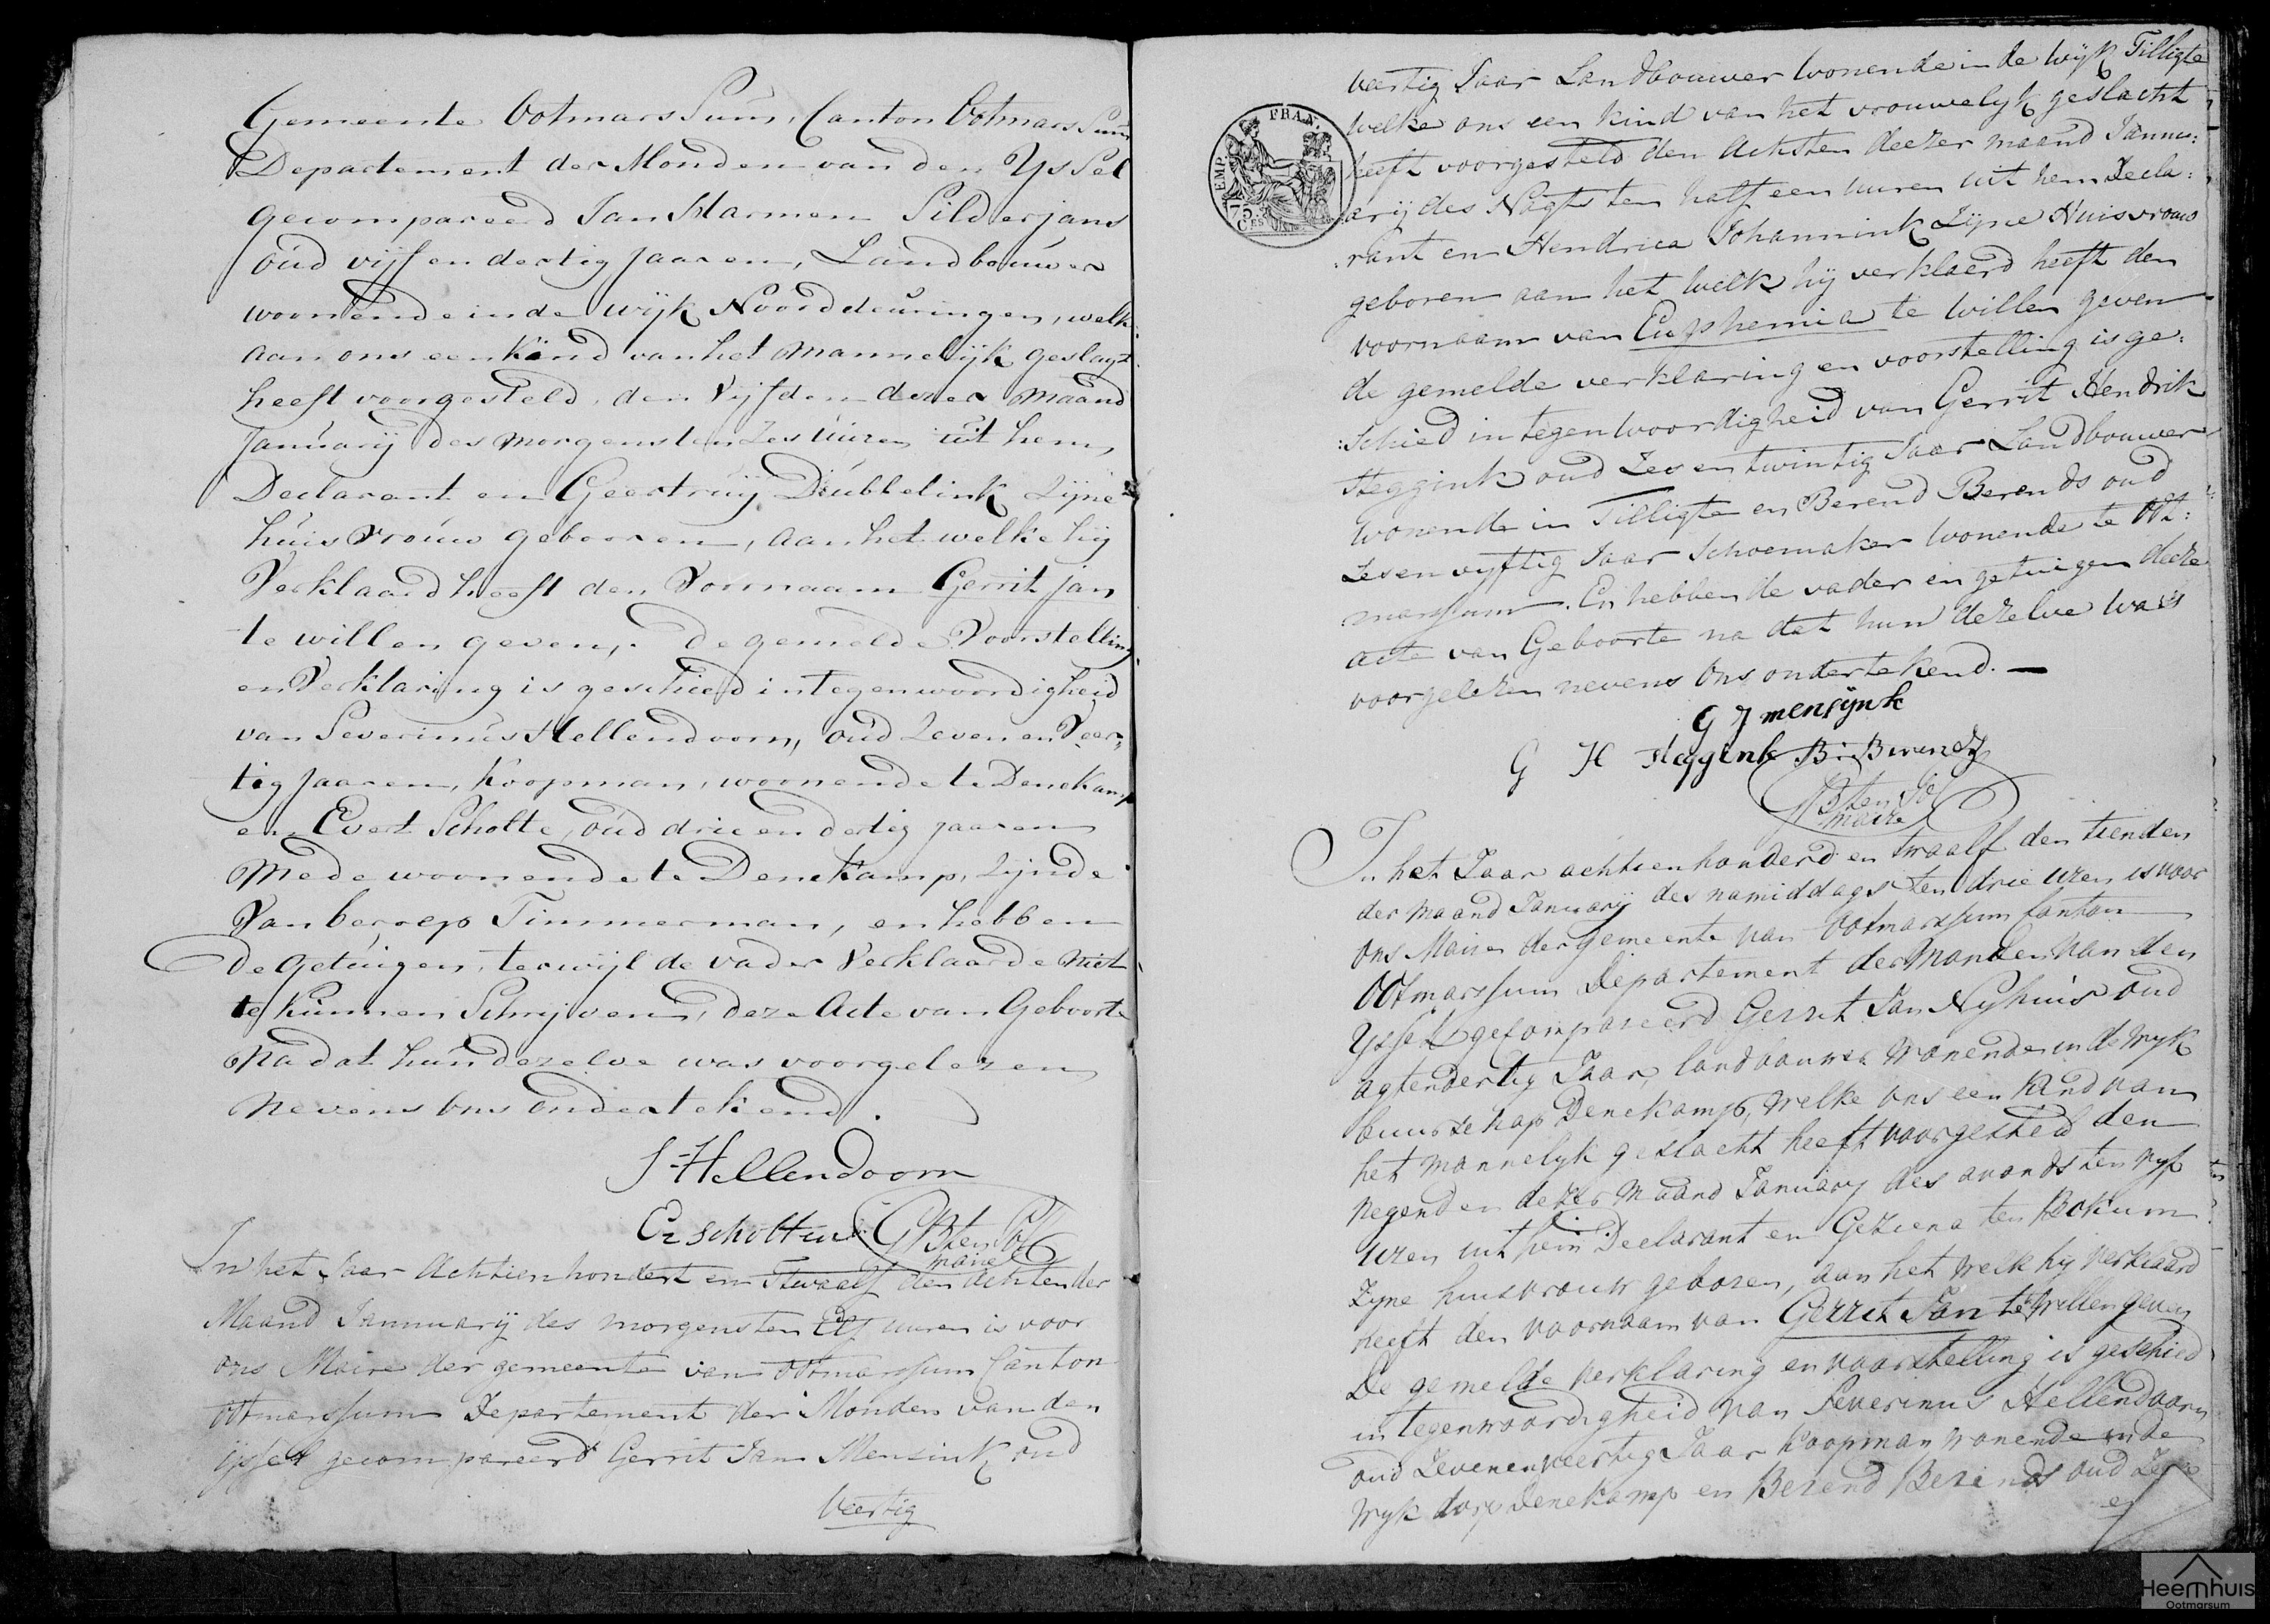 Gemeente Ootmarssum, Canton Ootmarssum
Departement der Monden van den Yssel
gecompareerd Jan Harmen Silderjans
oud vijf en dertig jaaren, Landbouwer
woonende in de wijk Noorddeuringen, welk
aan ons een kind van het mannelijk geslagt
heeft voorgesteld, den Vijfden dezer maand
Januarij des morgens ten zes uuren uit hem
Declarant en Geertruij Dubbelink zijne
huisvrouw gebooren, aan het welke hij
Verklaard heeft den Voornaam Gerrit jan
te willen geven,. de gemelde Voorstelling
en Verklaring is geschied in tegenwoordigheid
van Severinus Hellendoorn, oud Zeven en Veer„
tig Jaaren, Koopman, woonende te Denekamp
en Evert Scholte, oud drie en dertig jaaren
Mede woonende te Denekamp, zijnde
Van beroep Timmerman, en hebben
de getuigen, terwijl de vader Verklaarde niet
te kunnen Schrijven, deze Acte van Geboorte
Na dat hun dezelve was voorgelezen
Nevens ons ondertekend.
S Hellendoorn
Ev scholten GB ten Pol
maire
In het Jaar Achtien hondert en Twaalf den Achten der
Maand Jannuarij des morgens ten Elf uuren is voor
ons Maire der gemeente van Ootmarssum Canton
Ootmarssum Departement der Monden van den
ijssel gecompareerd Gerrit Jan Mensink oud
Veertig
veertig Jaar Landbouwer wonende in de wyk Tilligte
welke ons een kind van het vrouwelyk geslacht
heeft voorgesteld den Achsten deezer maand Jannu:
arij des Nagts ten half een uuren uit hem Decla:
:rant en Hendrica Johannink Zijne Huisvrouw
geboren aan het welk hij verklaerd heeft den
voornaam van Euphemia te willen geven
de gemelde verklaring en voorstelling is ge:
:schied in tegenwoordigheid van Gerrit Hendrik
Steggink oud Zes en twintig Jaar Landbouwer
wonende in Tilligte en Berend Berends oud
Zes en vyftig Jaar Schoemaker wonende te Oot:
marssum. En hebben de vader en getuigen deeze
acte van Geboorte na dat hun dezelve was
voorgelezen nevens Ons ondertekend. —
FRAN.
EMP.
75
Ces
G J mensijnk
G H steggink B: Berends
GB ten Pol
maire
In het Jaar achtienhonderd en twaalf den tienden
der maand January des namiddags ten drie uren is voor
ons Maire der gemeente van Ootmarssum Canton
Ootmarssum Departement der Monden van den
Yssel gecompareerd Gerrit Jan Nyhuis oud
agtendertig Jaar, landbouwer wonende in de wyk
buurschap Denekamp, welke ons een kind van
het mannelyk geslacht heeft voorgesteld den
negenden dezer Maand January des avonds ten vyf
uren uit hem Declarant en Geziena ten Beckum
zyne huisvrouw geboren, aan het welk hy verklaard
heeft den voornaam van Gerrit Jan te willen geven
De gemelde verklaring en voorstelling is geschied
in tegenwoordigheid van Severinus Hellendoorn
oud Zevenenveertig Jaar Koopman wonende in de
wyk dorp Denekamp en Berend Berends oud Zes
en
Heemhuis
Ootmarsum